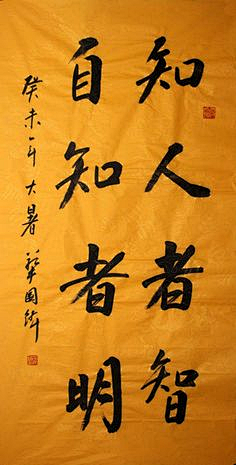 知人者智
自知者明
癸未年大暑